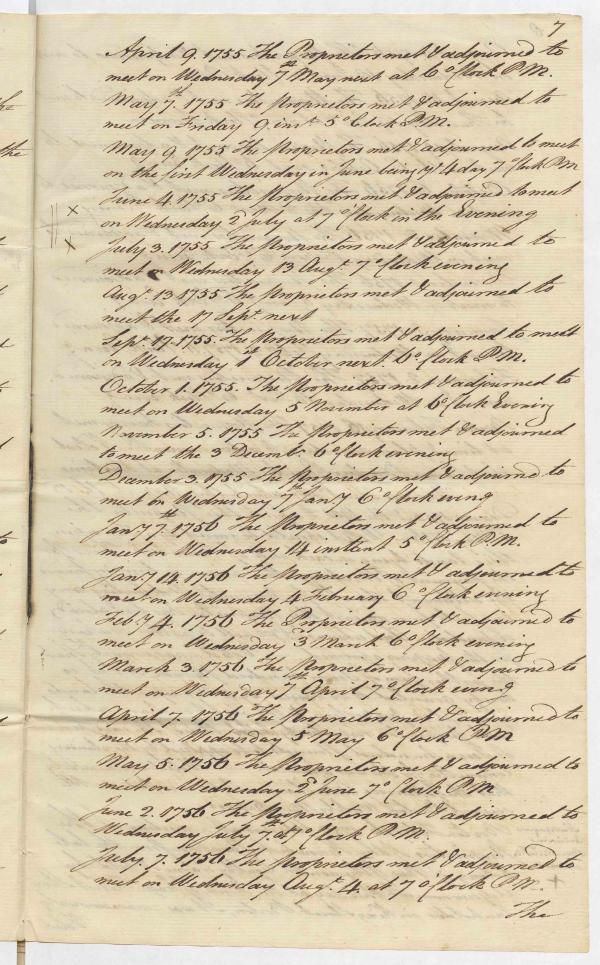 7
April 9. 1755 The Proprietors met & adjourned to
meet on Wednesday 7th May next at 6 o'Clock P.M.
May 7th. 1755 The Proprietors met & adjourned to
meet on Friday 9 inst. 5 o'Clock P.M.
May 9 1755 The Proprietors met & adjourned to meet
on the first Wednesday in June being ye 4 day 7 o'Clock PM
June 4. 1755 The Proprietors met & adjourned to meet
on Wednesday 2d July at 7 o'Clock in the Evening
July 3. 1755 The Proprietors met & adjourned to
meet on Wednesday 13 Augt. 7 o'Clock evening
Augt. 13 1755 The Proprietors met & adjourned to
meet the 17 Sept. next
Sept. 17. 1755. The Proprietors met & adjourned to meet
on Wednesday 1st October next. 6 o'Clock P.M.
October 1. 1755. The Proprietors met & adjourned to
meet on Wednesday 5 November at 6 o'Clock Evening
November 5. 1755 The Proprietors met & adjourned
to meet the 3 Decembr. 6 o'Clock evening
December 3. 1755 The Proprietors met & adjourned to
meet on Wednesday 7th Jany 6 o'Clock eveng
Jany 7th. 1756 The Proprietors met & adjourned to
meet on Wednesday 14 instant 5 o'Clock P.M.
Jany 14. 1756 The Proprietors met & adjourned to
meet on Wednesday 4 February 6 o'Clock evening
Feby 4. 1756 The Proprietors met & adjourned to
meet on Wednesday 3d March 6 o'Clock evening
March 3 1756 The Proprietors met & adjourned to
meet on Wednesday 7th April 7 o'Clock eveng
April 7. 1756 The Proprietors met & adjourned to
meet on Wednesday 5 May 6 o'Clock PM
May 5. 1756 The Proprietors met & adjourned to
meet on Wednesday 2d June 7 o'Clock PM
June 2. 1756 The Proprietors met & adjourned to
Wednesday July 7th. at 7 o'Clock P.M.
July. 7. 1756 The Proprietors met & adjourned to
meet on Wednesday Augt. 4. at 7 o'Clock P.M.
The